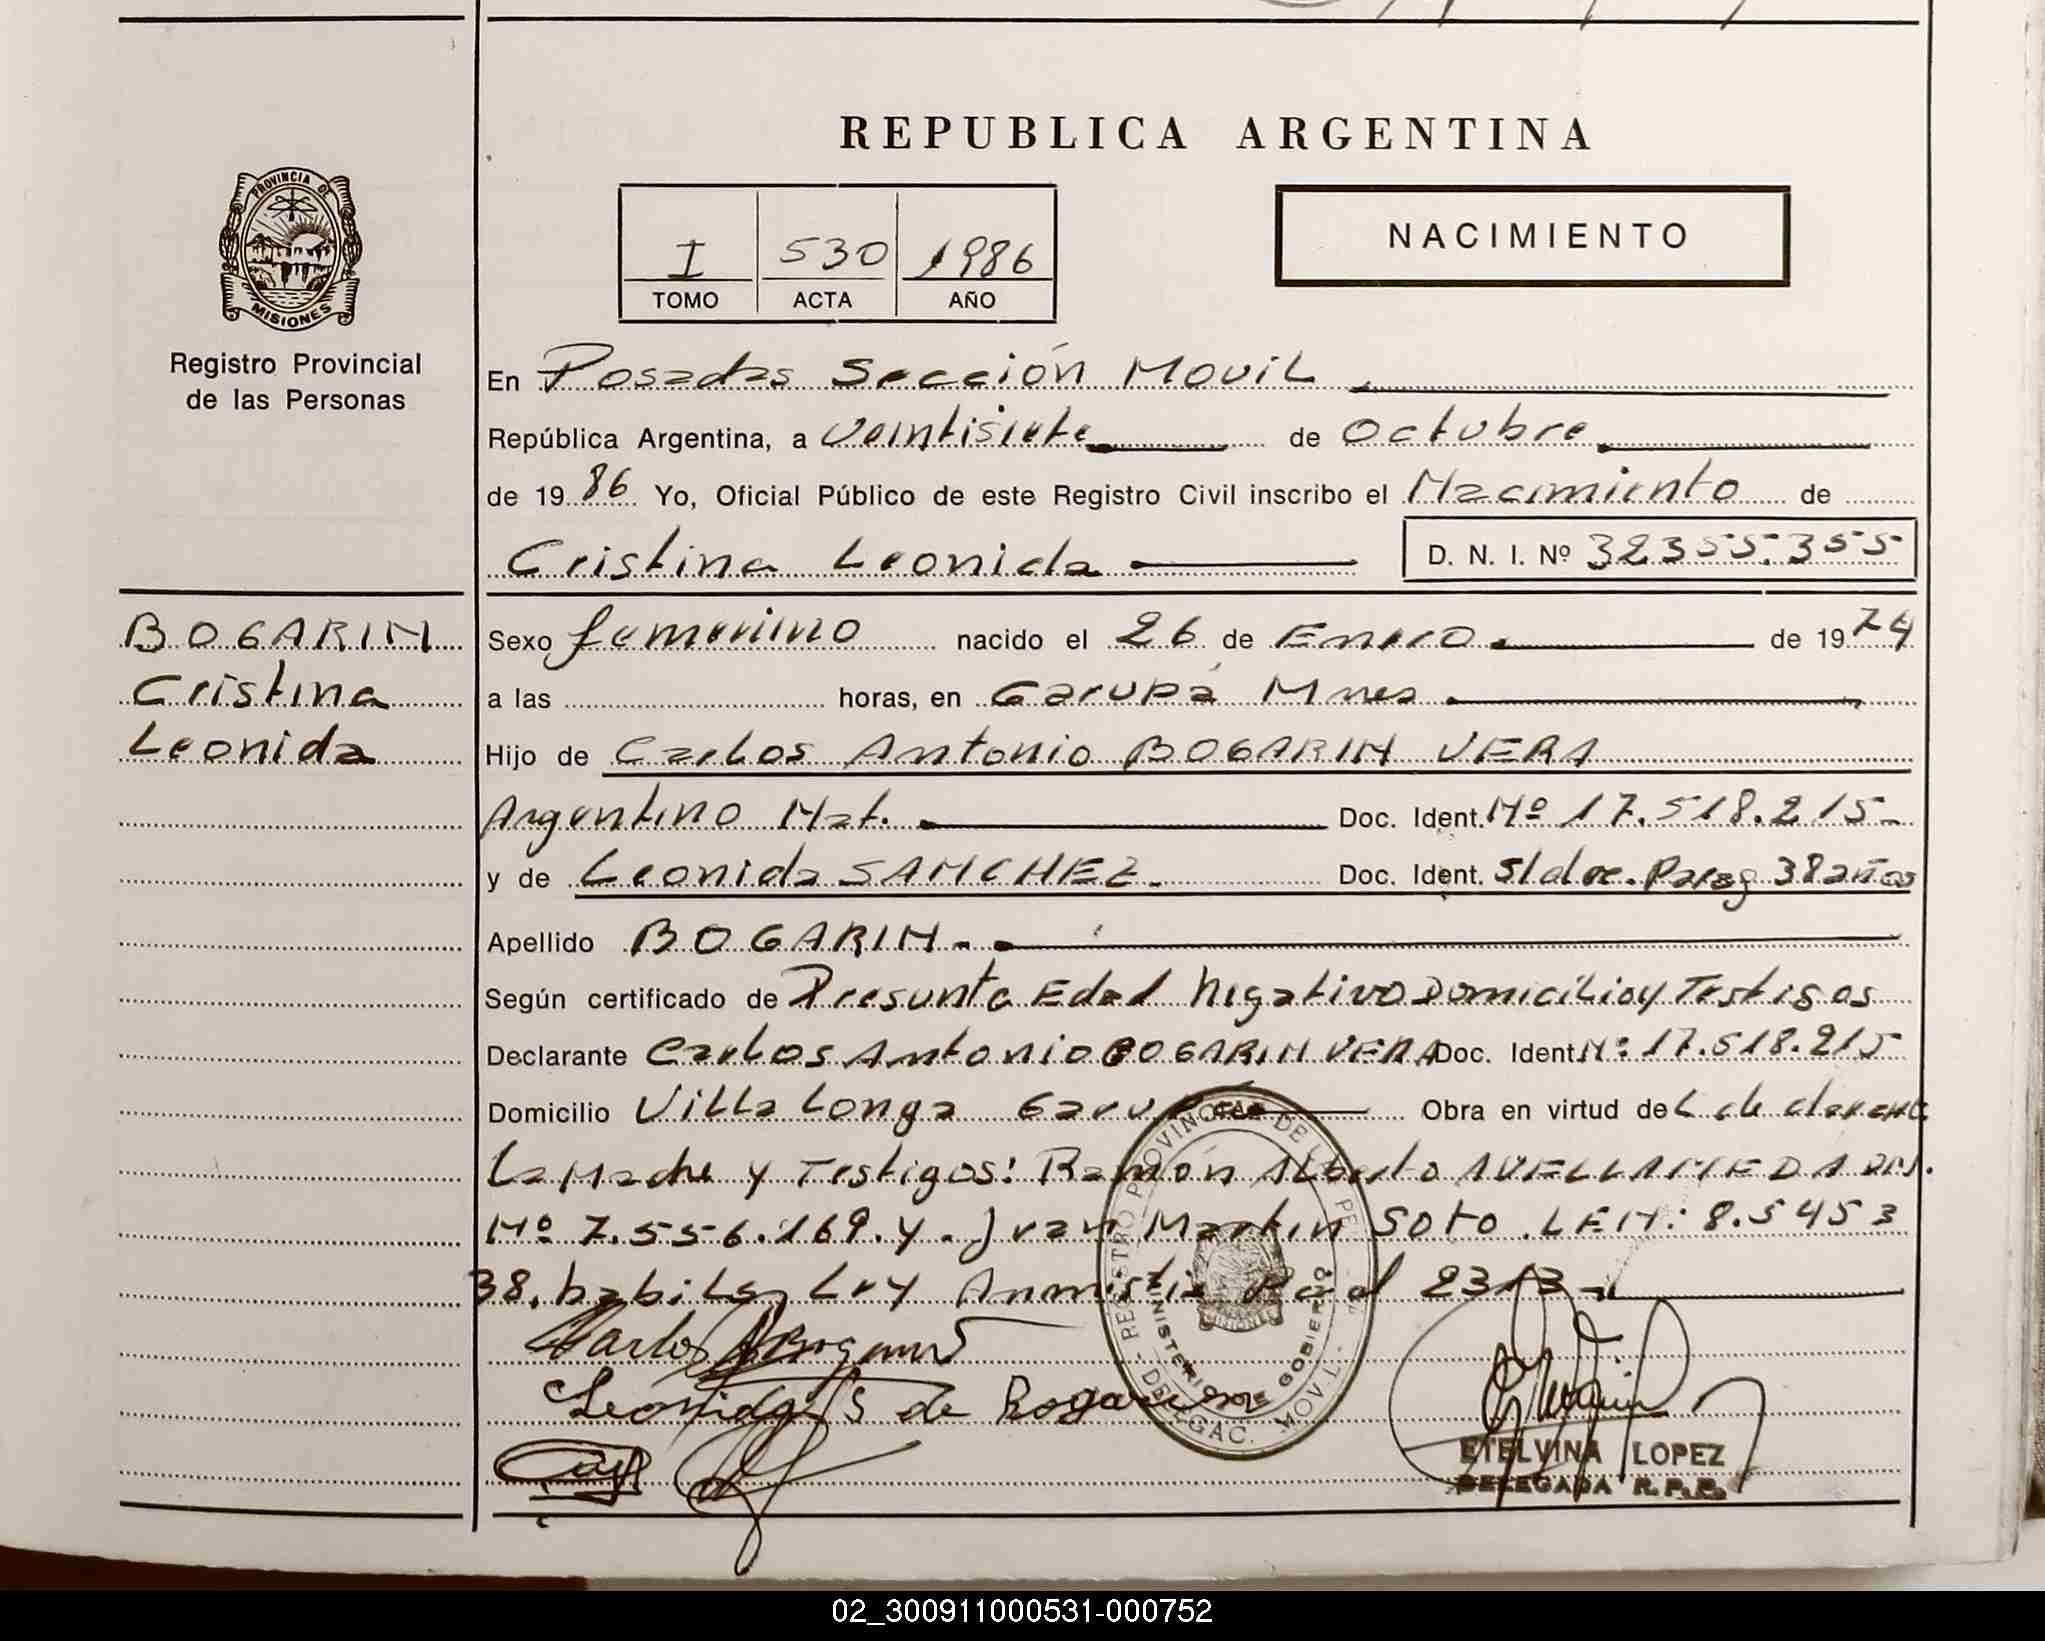 REPUBLICA ARGENTINA
PROVINCIA DE
MISIONES
Registro Provincial
de las Personas
I 530 1986
TOMO ACTA AÑO
NACIMIENTO
En Posadas Sección Movil
República Argentina, a Veintisiete de Octubre
de 1986 Yo, Oficial Público de este Registro Civil inscribo el Nacimiento de
Cristina Leonida D. N. I. Nº 32355.355
BOGARIN
Cristina
Leonida
Sexo femenino nacido el 26 de Enero de 1974
a las horas, en Garupá Mnes
Hijo de Carlos Antonio BOGARIN VERA
Argentino Nat. Doc. Ident. Nº 17.518.215-
y de Leonida SANCHEZ. Doc. Ident. S/doc. Parag 38 años
Apellido BOGARIN.
Según certificado de Presunta Edad Negativo Domicilio y Testigos
Declarante Carlos Antonio BOGARIN VERA Doc. Ident. Nº: 17.518.215
Domicilio Villa Longa Garupá Obra en virtud de L de
La Madre y Testigos: Ramón Alberto AVELLANEDA DNI.
Nº 7.556.169. y. Juan Martin Soto. LEN: 8.5453
38. Ley Amnistia 2313-
Carlos A Bogarin
Leonida S de Bogarin
REGISTRO PROVINCIAL DE LAS PE
MINISTERIO DE GOBIERNO
DELEGAC. MOVIL
ETELVINA LOPEZ
DELEGADA R.P.P.
02_300911000531-000752